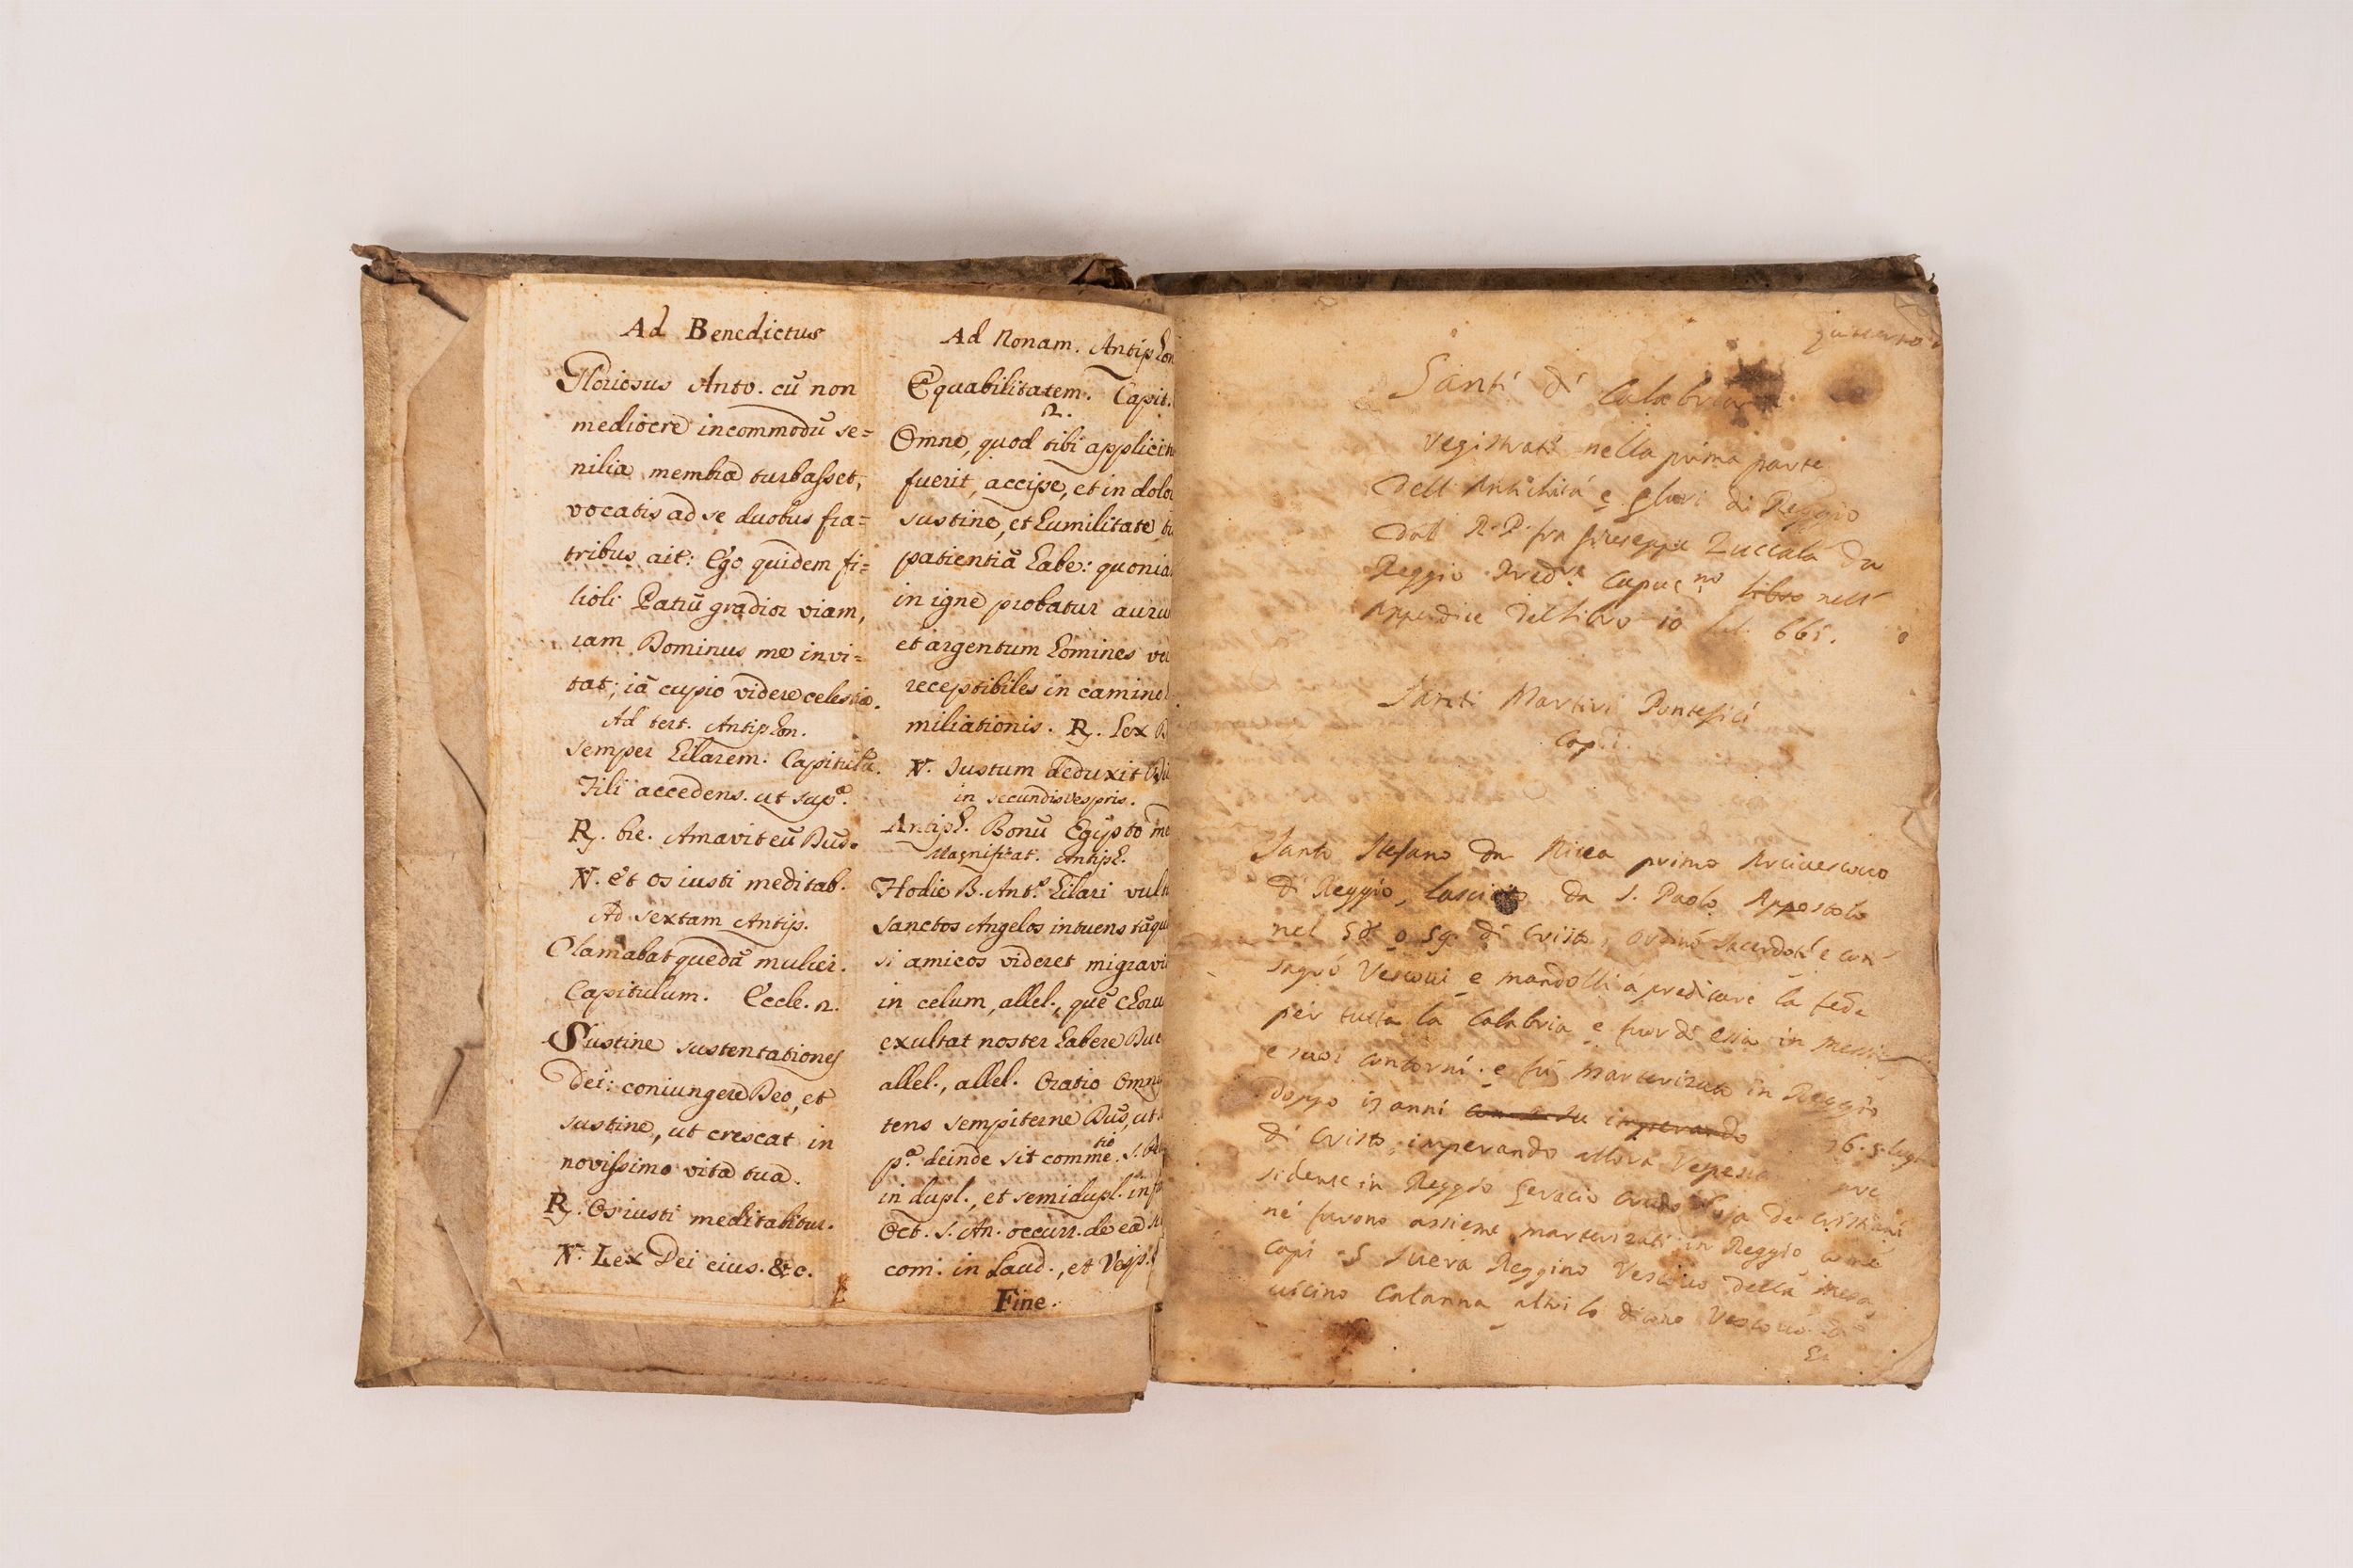 Ad Benedictus
Gloriosus Anto. cū non
mediocre incommodū se=
nilia membra turbasset,
vocatis ad se duobus fra=
tribus ait: Ego quidem fi=
lioli Patrū gradior viam,
iam Dominus me invi=
tat; iā cupio videre celestia.
Ad tert. Antiphon.
Semper hilarem: Capitula.
Fili accedens. ut supª.
R. bre. Amavit eū Dūs.
V. et os iusti meditab.
Ad sextam Antip.
Clamabat quedā mulier.
Capitulum. Eccle. 2.
Sustine sustentationes
Dei: coniungere Deo, et
sustine, ut crescat in
novissimo vita tua.
R. Os iusti meditabitur.
V. Lex Dei eius. &c.
Ad Nonam. Antiphon
Equabilitatem. Capit.
2.
Omne, quod tibi applicit
fuerit, accipe, et in dolo
sustine, et humilitate tu
patientiā habe: quonia
in igne probatur auru
et argentum homines ve
receptibiles in camino
miliationis. R. Lex D
V. Justum deduxit
in secundis Vespris.
Antiph. Bonū Egypto me
Magnificat. Antiph.
Hodie B. Ant.s hilari vult
Sanctos Angelos intuens tāqu
si amicos videret migravi
in celum, allel., quē choru
exultat noster habere Duc
allel., allel. Oratio Omni
tens sempiterne Dūs, ut
pª. deinde sit comme.tio S.
in dupl., et semidupl. infª
Oct. S. An. occurr. de ea
com. in Laud., et Vesp.
Fine.
Santi di Calabria
registrati nella prima parte
dell' Antichitá e glori di Reggio
dal R. P. fra Giuseppe Zuccalá da
Reggio Pred.re Capuc.no libro nell'
Appendice del libro 10 fol. 665.
Santi Martiri Pontefici
Cap. 1.
Santo Stefano da Nicea primo Arcivescovo
di Reggio, lasciato da S. Paolo Appostolo
nel 58 o 59 di Cristo, ordinó Sacerdoti e con
sagró Vescovi e mandolli á predicare la fede
per tutta la Calabria e fuor di essa in Messi
e suoi contorni. e fú martirizato in Reggio
doppo 17 anni imperando 76. 5. lugl
di Cristo, imperando allora Vespesia pre
sidente in Reggio Geracio de cristiani
né furono assieme martirizati in Reggio, come
capi S Suera Reggino Vescovo della
vicino Calanna altri lo dicono Vescovo di